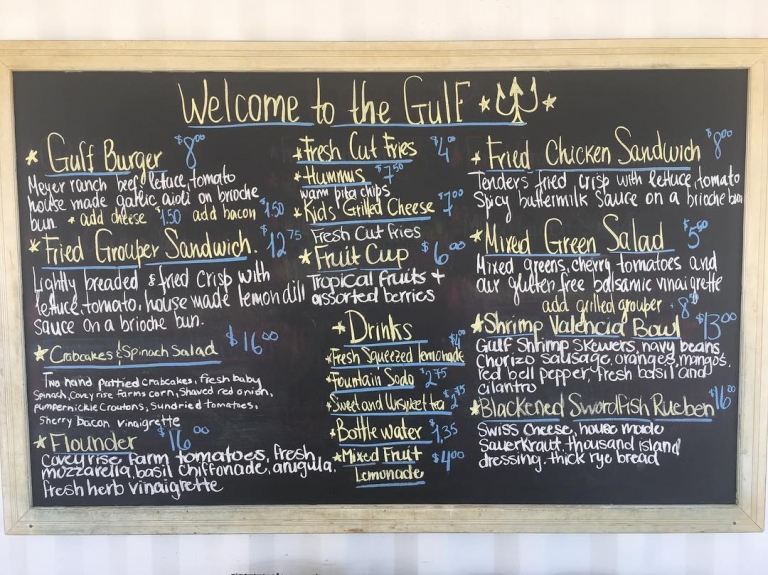 Welcome to the Gulf
Gulf Burger $8.00
Meyer ranch beef, lettuce, tomato
house made garlic aioli on brioche
bun. * add cheese $1.50 add bacon $1.50
Fried Grouper Sandwich. $12.75
Lightly breaded & fried crisp with
lettuce, tomato, house made lemon dill
sauce on a brioche bun.
Crabcakes & Spinach Salad $16.00
Two hand pattied crabcakes, fresh baby
spinach, Coveyrise farms corn, shaved red onion,
pumpernickle croutons, sundried tomatoes,
sherry bacon vinaigrette
Flounder $16.00
Coveyrise farm tomatoes, fresh
mozzarella, basil chiffonade, arugula,
fresh herb vinaigrette
Fresh Cut Fries $4.00
Hummus $7.50
warm pita chips
Kids' Grilled Cheese $7.00
Fresh Cut fries
Fruit Cup $6.00
Tropical fruits +
assorted berries
Drinks
Fresh Squeezed lemonade $4.00
Fountain Soda $2.75
Sweet and Unsweet tea
Bottle water $1.35
Mixed Fruit $4.00
Lemonade
Fried Chicken Sandwich $8.00
Tenders fried crisp with lettuce, tomato
Spicy buttermilk sauce on a brioche bun
Mixed Green Salad
Mixed greens, cherry tomatoes and
our gluten free balsamic vinaigrette
add grilled grouper
Shrimp Valencia Bowl $13.00
Gulf Shrimp skewers, navy beans
Chorizo sausage, oranges, mangos,
red bell pepper, fresh basil and
cilantro
Blackened Swordfish Rueben $16.00
Swiss cheese, house made
Sauerkraut, thousand island
dressing, thick rye bread